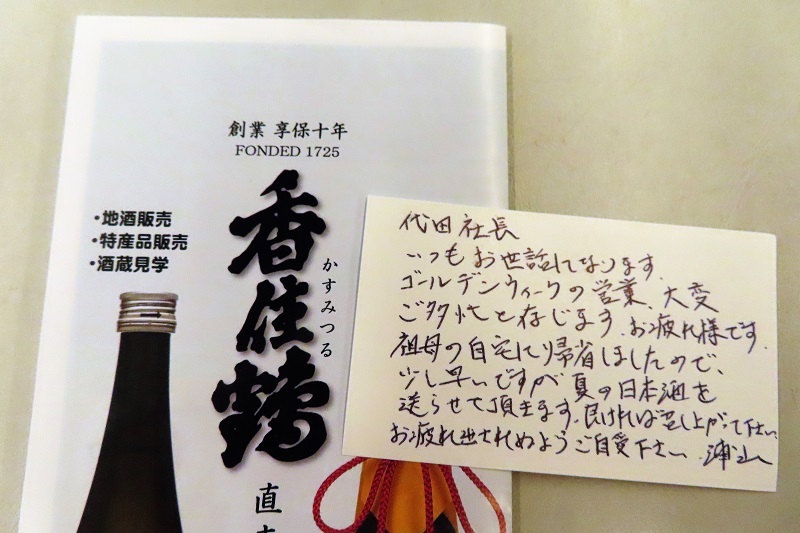 創業 享保十年
FONDED 1725
香住鶴
かすみつる
・地酒販売
・特産品販売
・酒蔵見学
代田社長
いつもお世話になります.
ゴールデンウィークの営業、大変
ご多忙と存じます.お疲れ様です.
祖母の自宅に帰省しましたので、
少し早いですが夏の日本酒を
送らせて頂きます.良ければ召し上がって下さい
お疲れ出されぬようご自愛下さい 浦山
直